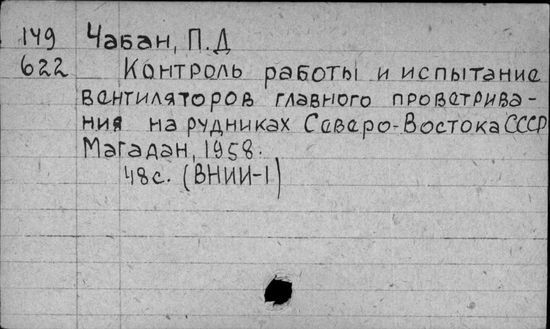 149 Чабан, П.Д
622 Контроль работы и испытание
вентиляторов главного проветрива-
ния на рудниках Северо-Востока СССР
Магадан, 1958.
48с. (ВНИИ-1)